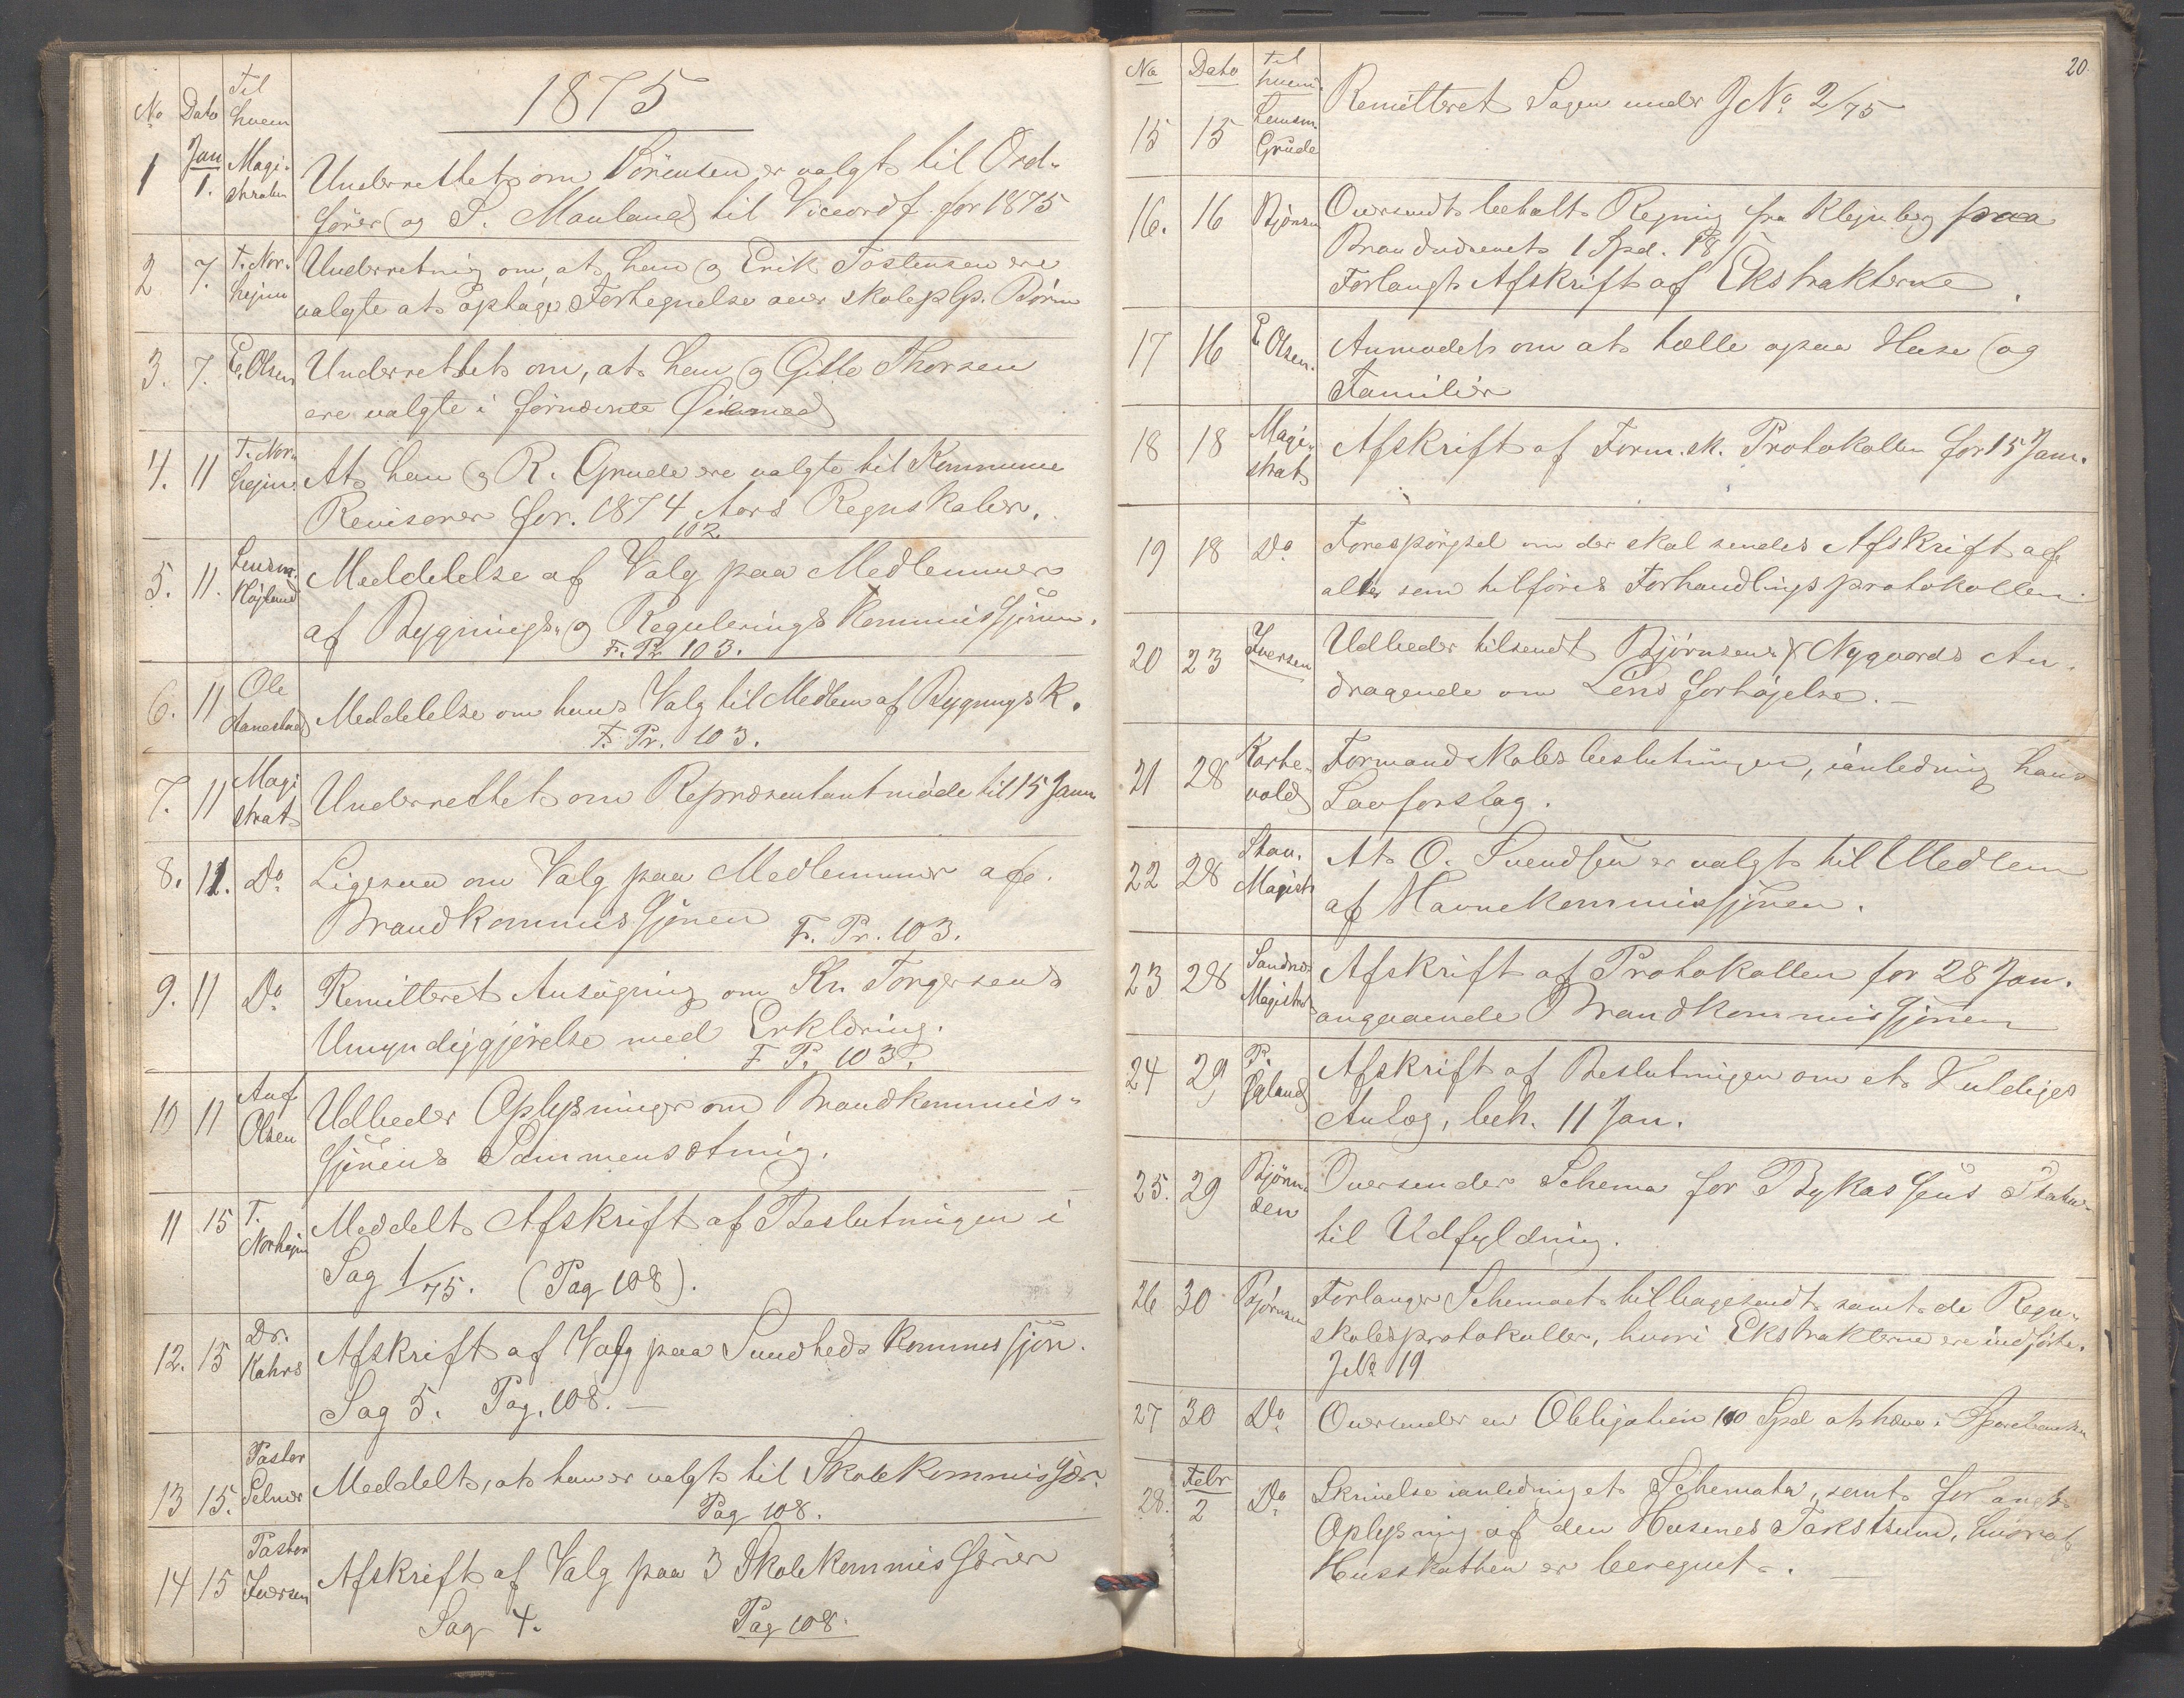 1875
No Dato Til hvem
1 Jan 1. Magi-straten Underrettet om Sörensen er valgt til Ord-
förer og S. Mauland til Viceordf. for 1875
2 7. T. Nor-hejm Underretning om, at han og Erik Tostensen ere
valgte at optage Fortegnelse over skoleplp. Börn
3. 7. E. Olsen Underrettet om, at han og Gitle Thorsen
ere valgte i fornævnte Öiemed
4. 11 T. Nor-hejm At han og R. Grude ere valgte til Kommune
Revisorer for 1874 Aars Regnskaber.
102
5. 11. Lensm. Höjland Meddelelse af Valg paa Medlemmer
af Bygnings- og Regulerings Kommissjonen.
F. Pr 103.
6. 11 Ole Aanestad Meddelelse om hans Valg til Medlem af Bygnings K.
F. Pr. 103.
7. 11 Magi strat Underrettet om Repræsentantmöde til 15 Janr
8. 11. Do Ligesaa om Valg paa Medlemmer af
Brandkommissjonen F. Pr. 103.
9. 11 Do Remitteret Ansögning om Kn. Torgersens
Umyndiggjörelse med Erklæring.
F. P. 103.
10 11 Auf Olsen Udbeder Oplysninger om Brandkommis-
sjonens Sammensætning.
11 15 T. Norhejm Meddelt Afskrift af Beslutningen i
Sag 1/75. (Pag 108).
12. 15 Dr. Kahrs Afskrift af Valg paa Sundheds Kommissjon.
Sag 5. Pag. 108. —
13 15. Pastor Selmer Meddelt, at han er valgt til Skolekommissær
Pag 108.
14 15 Pastor Iversen Afskrift af Valg paa 3 Skolekommissærer
Sag 4. Pag 108.
20.
No Dato til hvem
15 15 Lensm. Grude Remitteret Sagen under J No 2/75
16. 16 Björnsen Oversendt betalt Regning fra Klejnberg paa
Brandvæsenet 1 Spd. 18 ß
Forlangt Afskrift af Ekstrakterne.
17 16 E Olsen. Anmodet om at tælle ogsaa Huse og
Familier
18 18 Magi-strat Afskrift af Form.sk. Protokollen for 15 Jan.
19 18 Do Forespörgsel om der skal sendes Afskrift af
alt som tilföres Forhandlingsprotokollen.
20 23 Iversen Udbeder tilsendt Björnsens & Nygaards An-
dragende om Löns forhöjelse. —
21 28 Karte-vold Formandskabsbeslutningen, ianledning hans
Lovforslag.
22 28 Stav. Magist At O. Svendsen er valgt til Medlem
af Havnekommissjonen.
23 28 Sandnes Magistrat Afskrift af Protokollen for 28 Jan.
angaaende Brandkommissjonen
24 29 P. Hgland Afskrift af Beslutningen om et Kuldejes
Anlæg, beh. 11 Jan.
25. 29 Björn-sen Oversender Schema for Bykassens Status
til Udfyldning.
26 30 Björnsen Forlanger Schemaet tilbagesendt samt de Regn-
skabsprotokoller, hvori Ekstrakterne ere indförte.
J No 19
27 30 Do Oversender en Obligation 100 Spd at hæve i Sparebanken
28. Febr 2 Do Skrivelse ianledning et Schemata, samt forlangt
Oplysning af den Husenes Takstsum, hvorat
Husskatten er beregnet. —